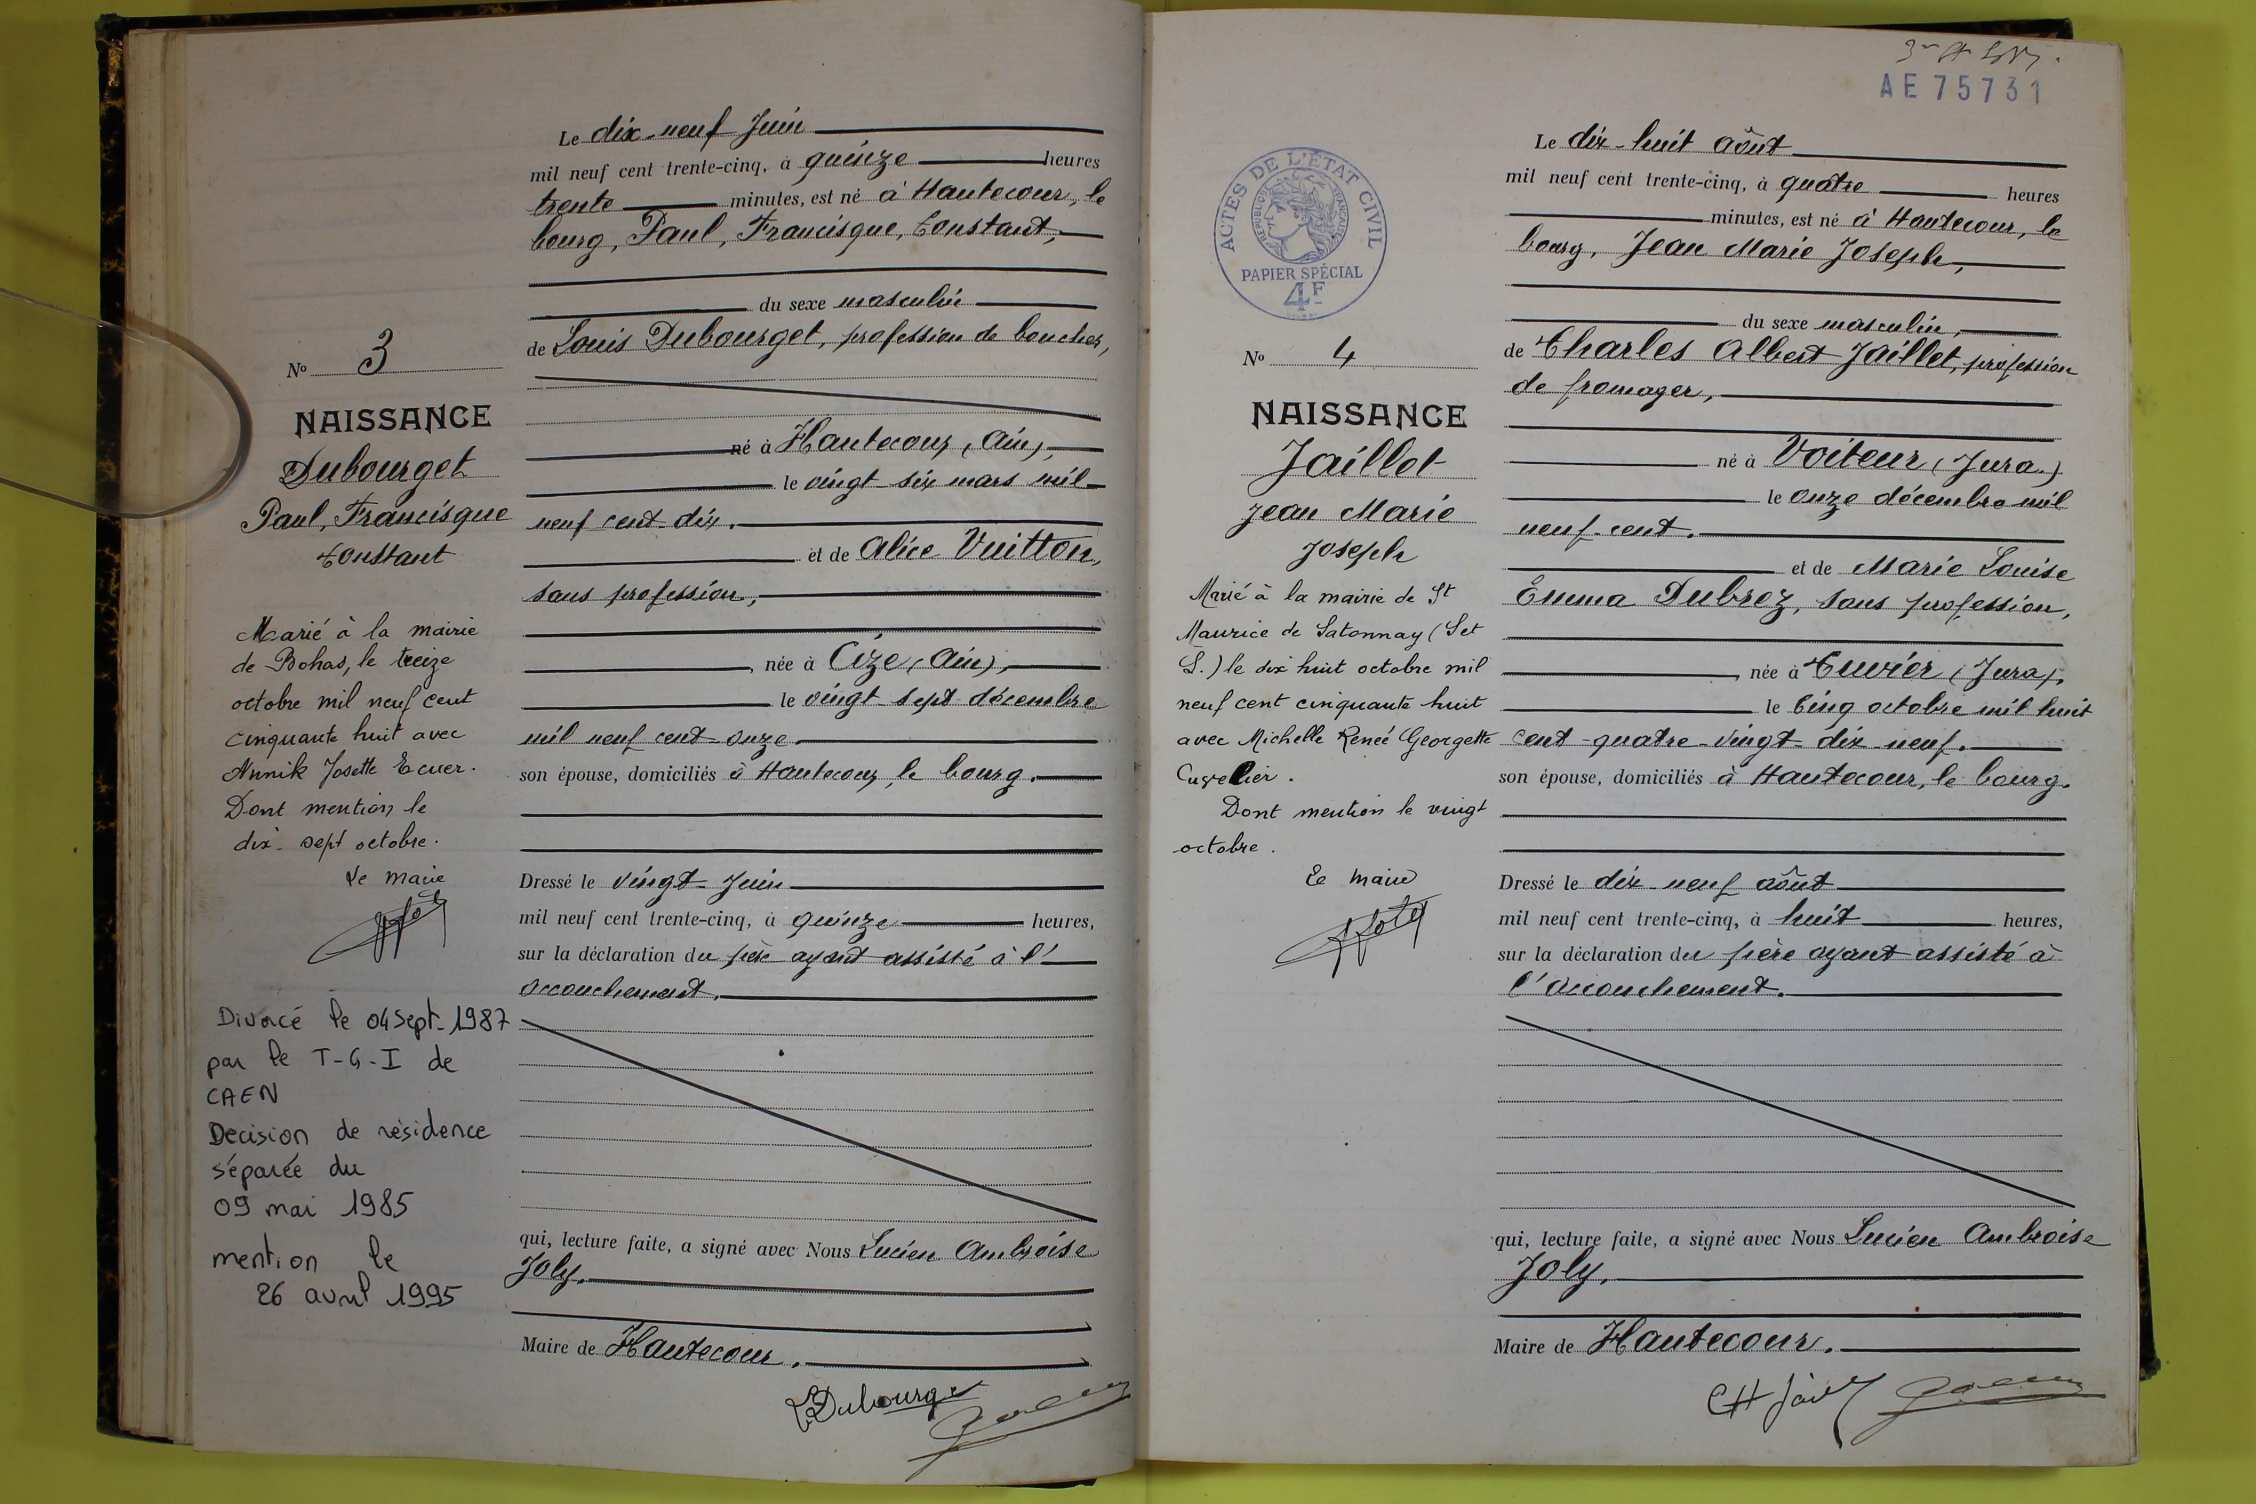 Le dix-neuf Juin
mil neuf cent trente-cinq, à quinze heures
trente minutes, est né à Hautecour, le
bourg, Paul, Francisque, Constant,
du sexe masculin
de Louis Dubourget, profession de boucher,
né à Hautecour, (Ain),
le vingt-six mars mil
neuf cent-dix.
et de Alice Vuitton,
sans profession,
, née à Cize, (Ain),
le vingt-sept décembre
mil neuf cent-onze.
son épouse, domiciliés à Hautecour, le bourg.
Dressé le vingt-Juin
mil neuf cent trente-cinq, à quinze heures,
sur la déclaration du père ayant assisté à l'
accouchement.
qui, lecture faite, a signé avec Nous Lucien Ambroise
Joly.
Maire de Hautecour.
Dubourget
No 3
NAISSANCE
Dubourget
Paul, Francisque
Constant
Marié à la mairie
de Bohas, le treize
octobre mil neuf cent
cinquante huit avec
Annik Josette Ecuer.
Dont mention le
dix-sept octobre.
Le maire
Divorcé le 04 Sept-1987
par le T-G-I de
CAEN
Decision de résidence
séparée du
09 mai 1985
mention le
26 avril 1995
AE 75731
ACTES DE L'ÉTAT CIVIL
RÉPUBLIQUE FRANÇAISE
PAPIER SPÉCIAL
4F
No 4
NAISSANCE
Jaillet
Jean Marie
Joseph
Marié à la mairie de St
Maurice de Satonnay (S et
L.) le dix huit octobre mil
neuf cent cinquante huit
avec Michelle Reneé Georgette
Cuvelier.
Dont mention le vingt
octobre.
Le maire
Le dix-huit août
mil neuf cent trente-cinq, à quatre heures
minutes, est né à Hautecour, le
bourg, Jean Marie Joseph,
du sexe masculin,
de Charles Albert Jaillet, profession
de fromager,
né à Voiteur (Jura.)
le onze décembre mil
neuf-cent.
et de Marie Louise
Emma Dubrez, sans profession,
, née à Cuvier (Jura),
le Cinq octobre mil huit
cent-quatre-vingt-dix-neuf.
son épouse, domiciliés à Hautecour, le bourg.
Dressé le dix-neuf août
mil neuf cent trente-cinq, à huit heures,
sur la déclaration du père ayant assisté à
l'accouchement.
qui, lecture faite, a signé avec Nous Lucien Ambroise
Joly.
Maire de Hautecour.